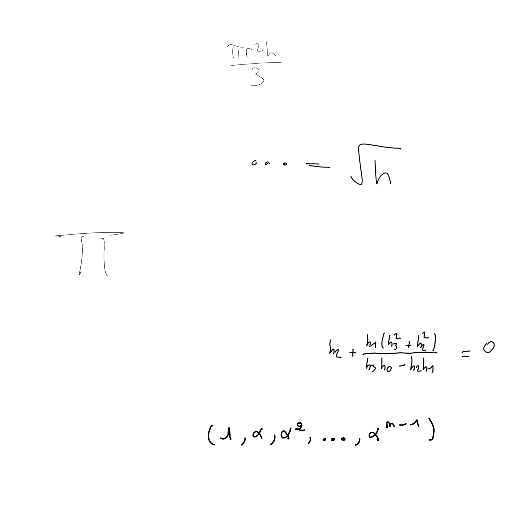 \frac{\pi r^2 h}{3}
\dots = \sqrt{h}
\overline{\Pi}
h_2 + \frac{h_1(h_3^2 + h_2^2)}{h_3 h_0 - h_2 h_1} = 0
(1, \alpha, \alpha^2, \dots, \alpha^{n-1})